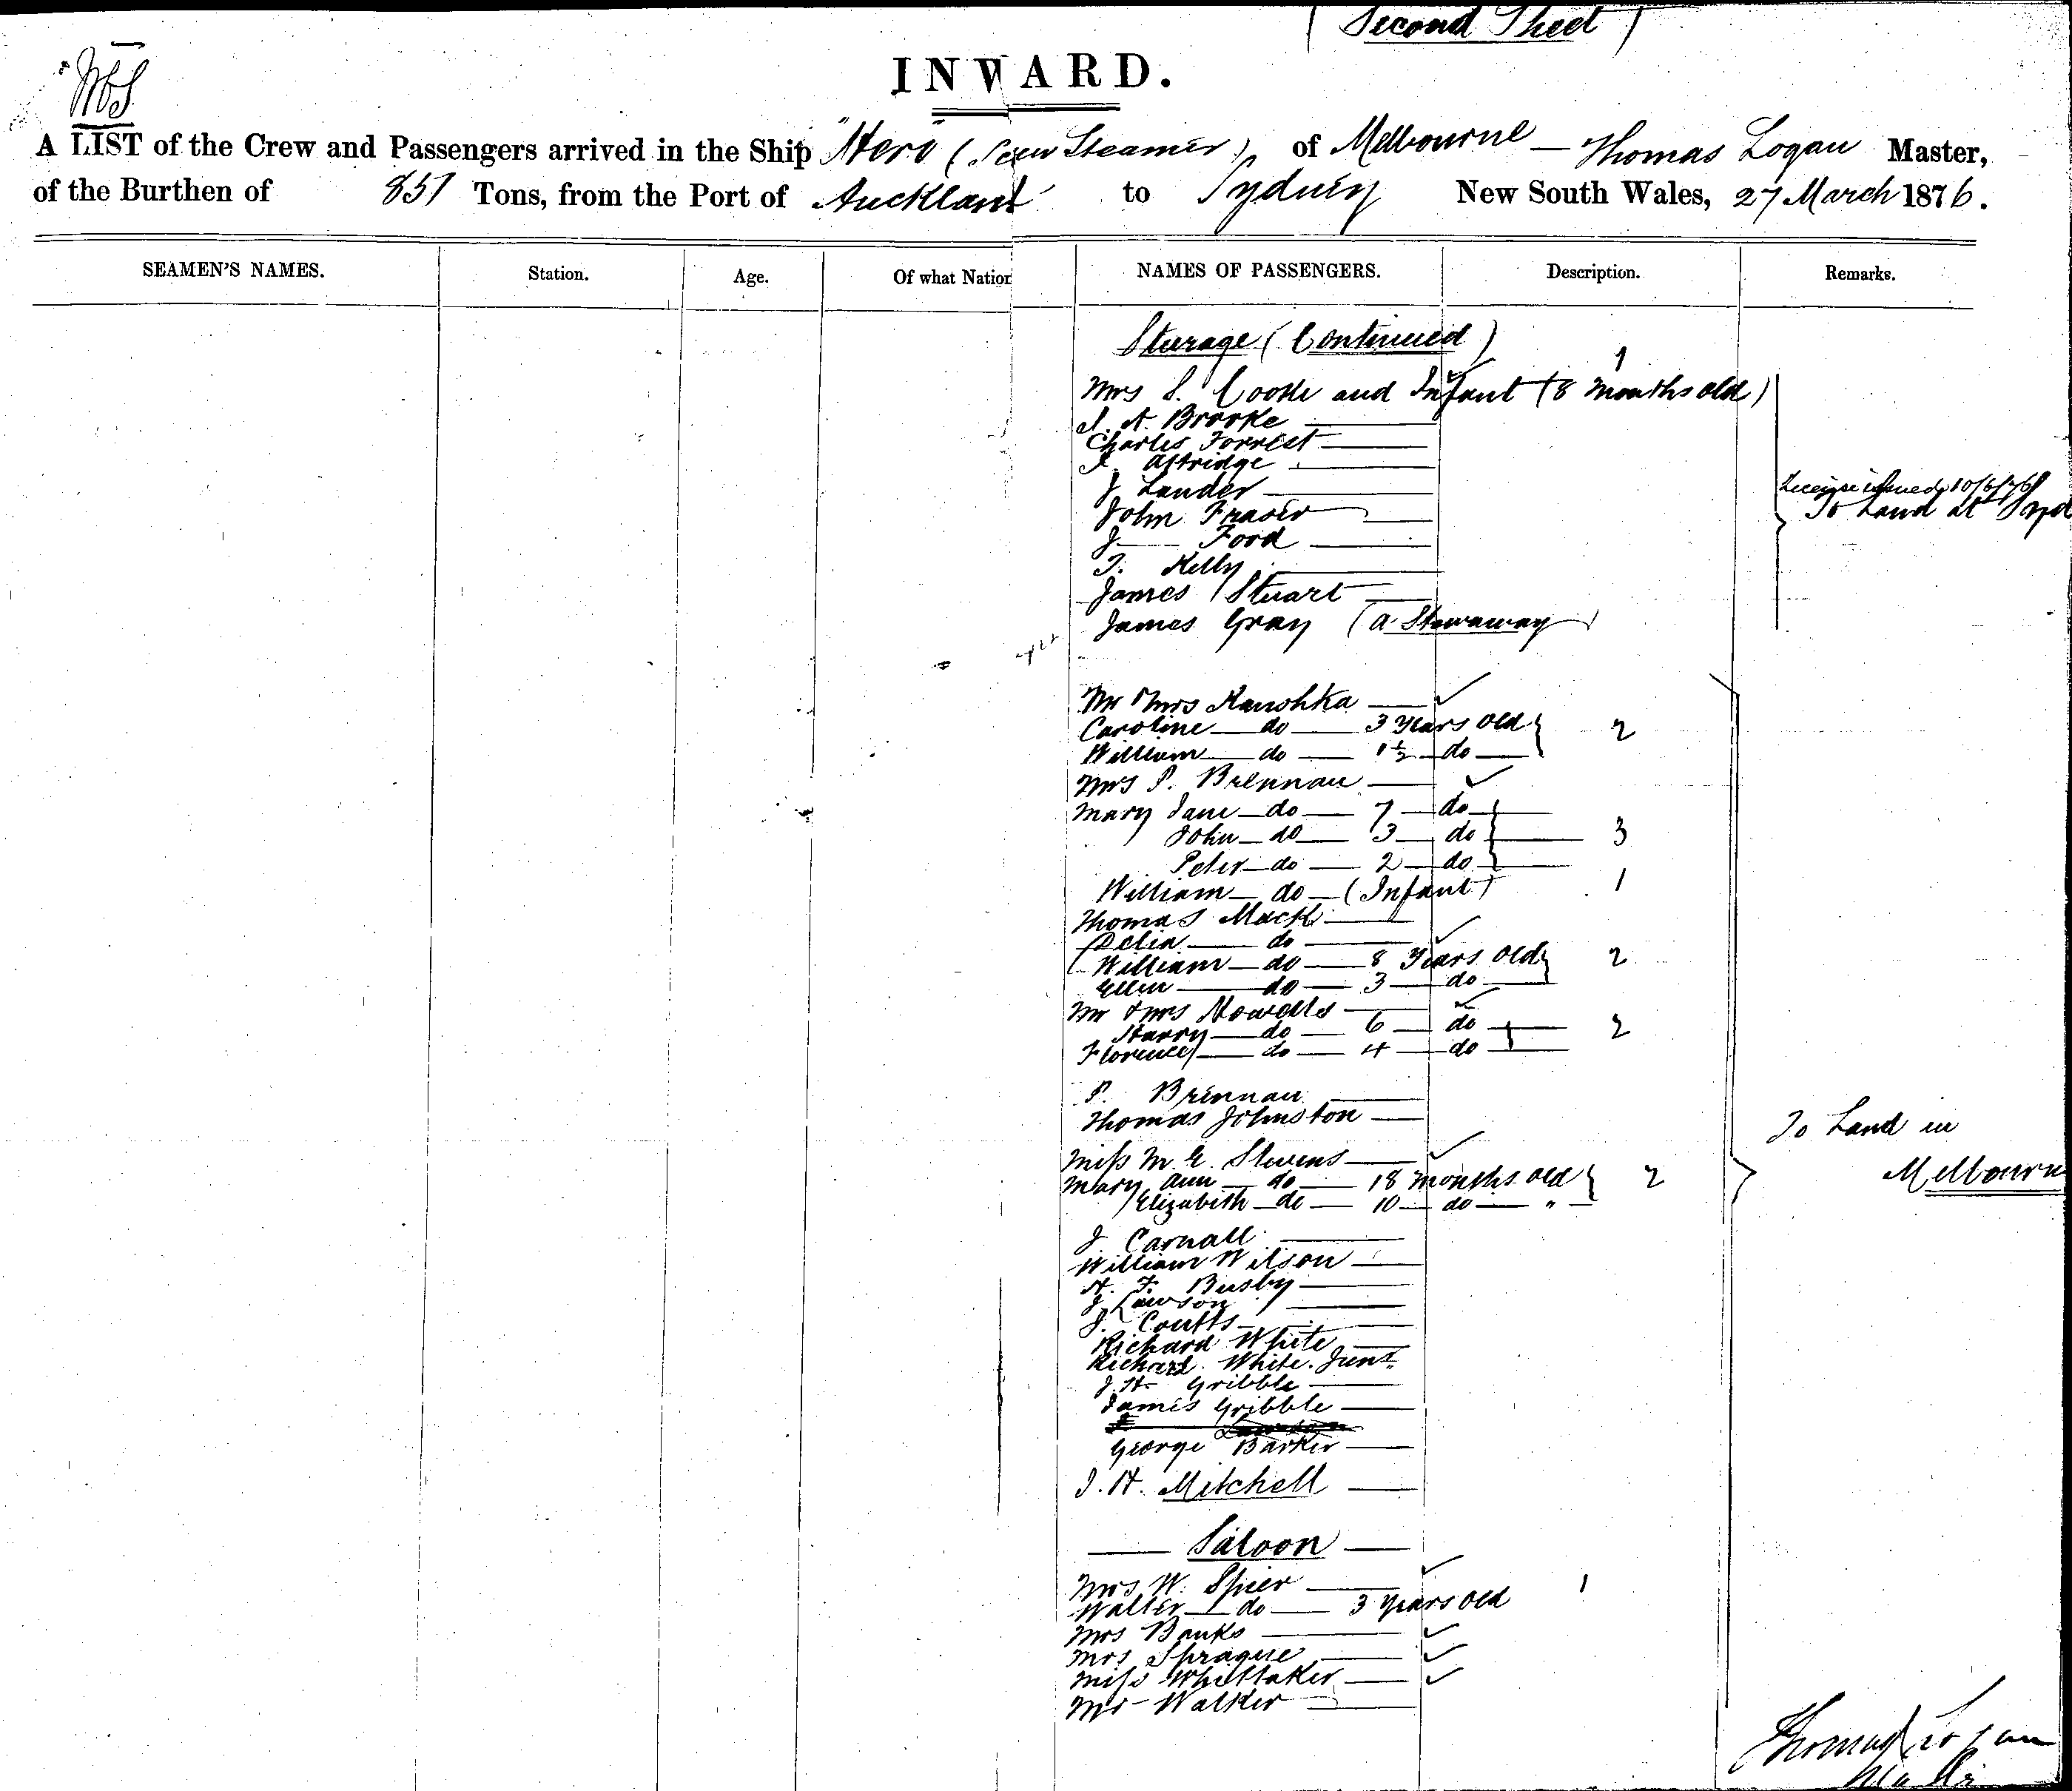 (Second Sheet)
INWARD.
A LIST of the Crew and Passengers arrived in the Ship "Hero" (Screw Steamer) of Melbourne — Thomas Logan Master,
of the Burthen of 851 Tons, from the Port of Auckland to Sydney New South Wales, 27 March 1876.
SEAMEN'S NAMES. Station. Age. Of what Nation NAMES OF PASSENGERS. Description. Remarks.
Steerage (Continued)
1
Mrs S. Cooke and Infant (8 months old)
J. A. Brooke
Charles Forrest
Attridge
J Lander
John Fraser
To Land at Syd
J — Ford
T. Kelly
James Stuart
James Gray (a Stowaway)
Mr & Mrs Kanohka
Caroline — do — 3 Years old } 2
William — do — 1½ — do —
Mrs P. Brennan
Mary Jane — do — 7 — do
John — do — 3 — do } 3
Peter — do — 2 — do
William — do — (Infant) 1
Thomas Mack
Delia — do —
William — do — 8 Years old } 2
Ellen — do — 3 — do
Mr & Mrs Howells
Harry — do — 6 — do } 2
Florence — do — 4 — do
P. Brennan
Thomas Johnston
To Land in
Miss M. E. Stevens
Melbourn
Mary Ann — do — 18 months old } 2
Elizabeth — do — 10 — do — "
J. Carnall
William Wilson
H. F. Busby
J. Lawson
J. Coutts
Richard White
Richard White. Junr.
J. H. Gribble
James Gribble
George Barker
J. H. Mitchell
— Saloon —
Mrs W. Spier
Walter — do — 3 years old 1
Mrs Banks
Mrs Sprague
Miss Whittaker
Mr Walker
Thomas Logan